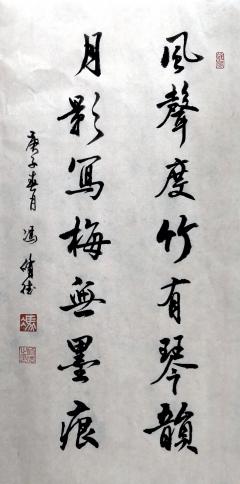 風聲度竹有琴韻
月影寫梅無墨痕
庚子春月 馮